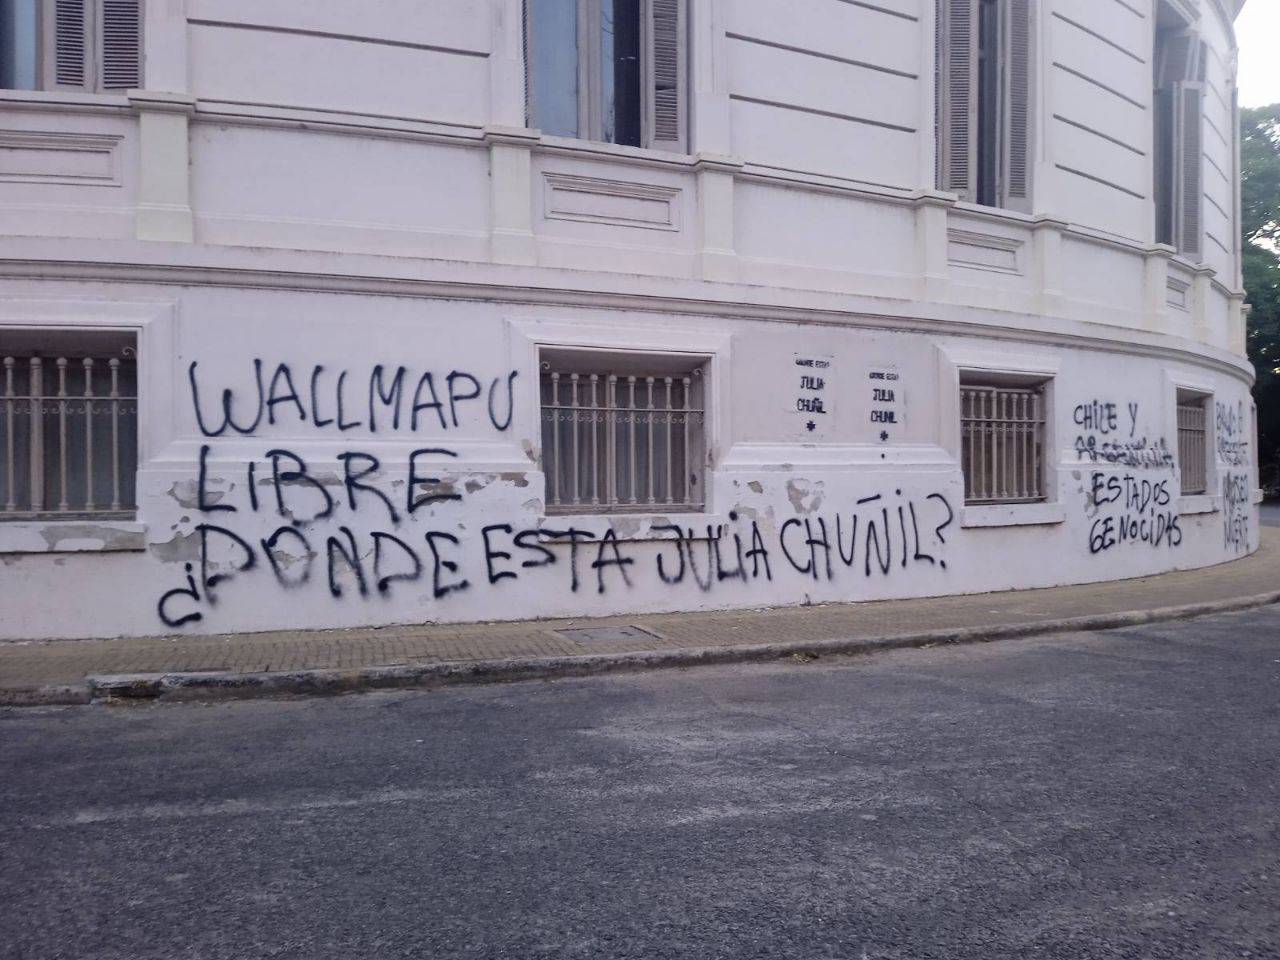 WALLMAPU
LIBRE
¿DONDE ESTA JULIA CHUÑIL?
DONDE ESTA?
JULIA
CHUÑIL
*
DONDE ESTA?
JULIA
CHUÑIL
*
CHILE Y
ARGENTINA
ESTADOS
GENOCIDAS